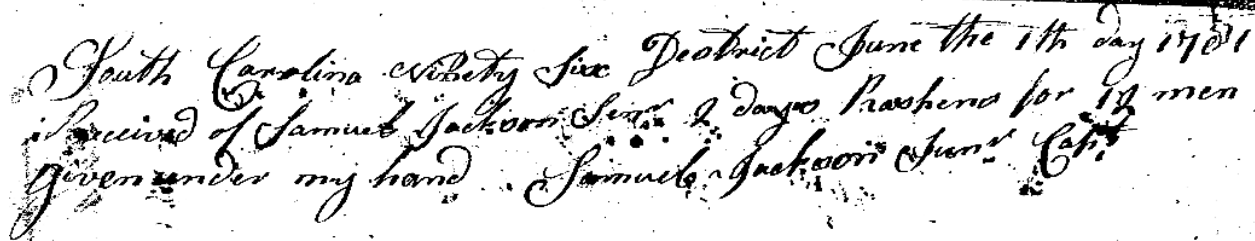 South Carolina Ninety Six Destrict June the 1th day 1781
Received of Samuel Jackson Senr 2 days Rashens for 19 men
Given under my hand Samuel Jackson Junr Capt